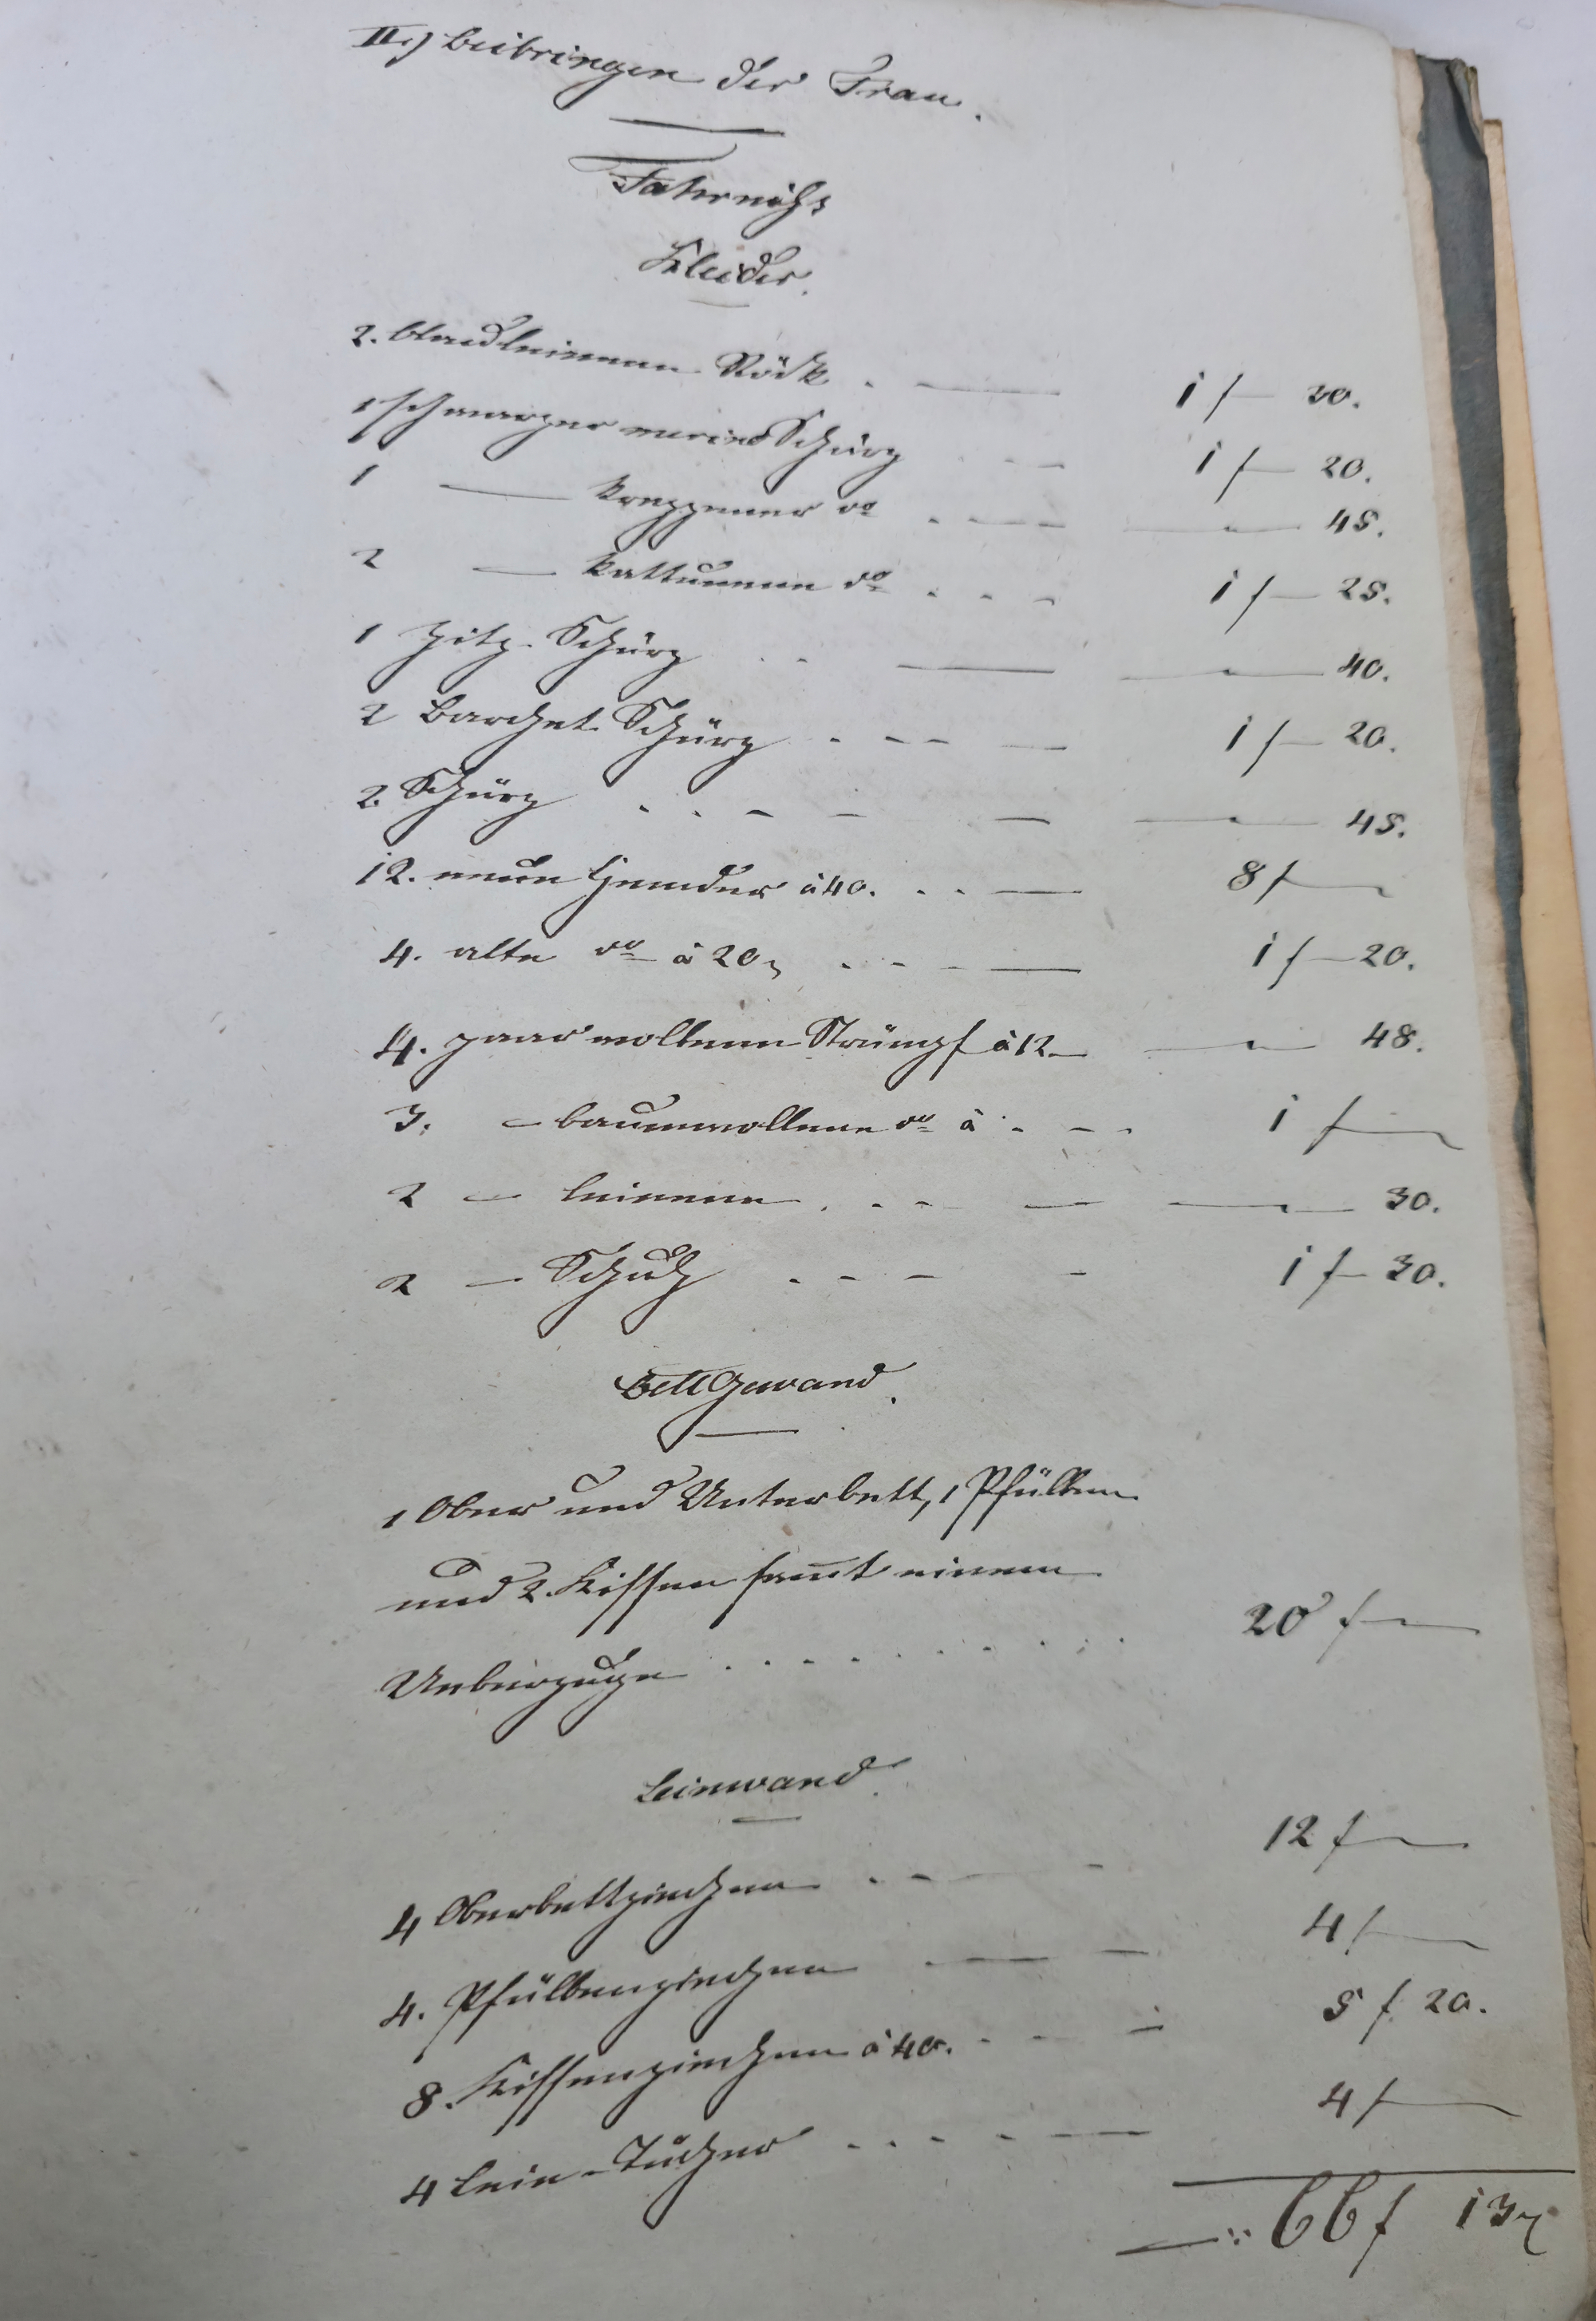 II.) Beibringen der Frau.
Fahrniß
Kleider.
2. blauleinene Röck . — 1 f — 30.
1 schwarzer merino Schurz . - - 1 f — 20.
1 — kreppener do . - — — 45.
2 — kattunene do . . - 1 f — 25.
1 Zitz-Schürz . . — — 40.
2 Barchet Schürz . - - — 1 f — 20.
2. Schürz . . - - — — 45.
12. neue Hemder à 40. . . — 8 f —
4. alte do à 20 . - - — 1 f — 20.
4. paar wollene Strümpf à 12. — — 48.
3. — baumwollene do à . - - 1 f —
2 — leinene . . - — — 30.
2 — Schuh . - - - 1 f — 30.
Bettgewand.
1 Ober und Unterbett, 1 Pfülben
und 2. Kissen samt einem
Ueberzuge . . . . . . . . 20 f —
Leinwand.
4 Oberbettziechen . - — - 12 f —
4. Pfülbenziechen — — 4 f —
8. Kissenziechen à 40. - - — 5 f. 20.
4 Lein-Tücher . . - - — 4 f —
—: 66 f 13